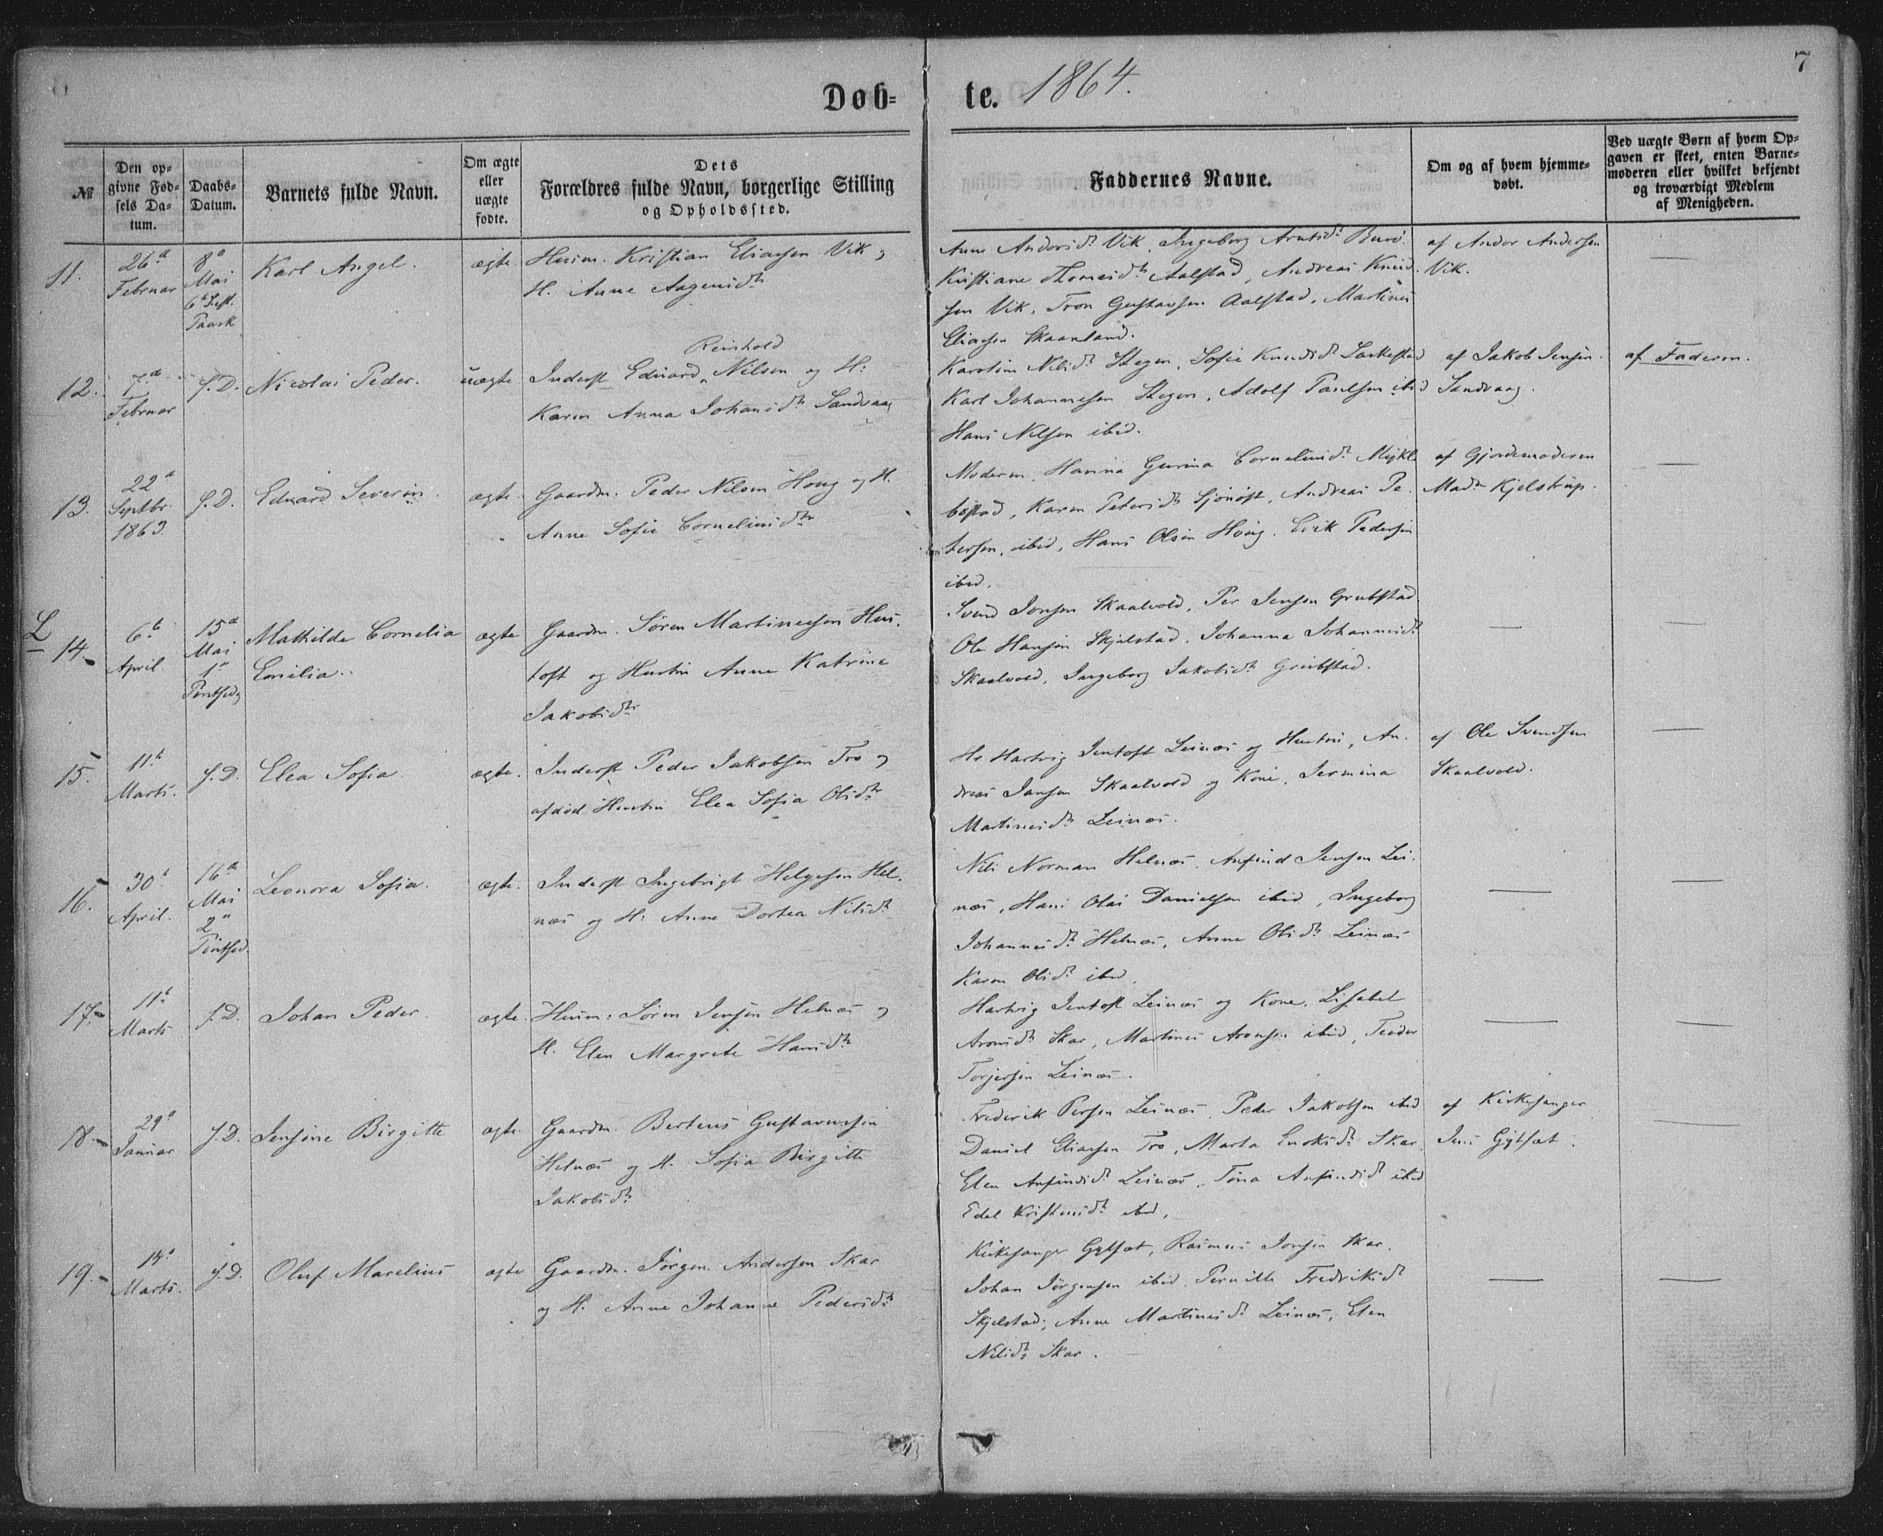 7
Døb-
te. 1864.
№
Den op-
givne Fød-
sels Da-
tum.
Daabs-
Datum.
Barnets fulde Navn.
Om ægte
eller
uægte
fødte.
Dets
Forældres fulde Navn, borgerlige Stilling
og Opholdssted.
Faddernes Navne.
Om og af hvem hjemme-
døbt.
Ved uægte Børn af hvem Op-
gaven er skeet, enten Barne-
moderen eller hvilket bekjendt
og troværdigt Medlem
af Menigheden.
11.
26de
Februar
8de
Mai
6te
Karl Angel.
ægte
Huusm. Kristian Eliasen Vik og
H. Anne Aagesdtr
Anne Andorsdtr Vik, Ingeborg Arntsdtr
Kristiane Thomesdtr Aalstad, Andreas Knud-
sen Vik, Tron Gustavsen Aalstad, Martinus
Eliasen Skaanland.
af Andor Andersen
Vik.
12.
7de
Februar
s. D.
Nicolai Peder.
uægte
Reinhold
Inderst Eduard Nilsen og H:
Karen Anna Johansdtr Sandvaag
Karoline Nilsdtr Stegen, Sofie Knudsdtr
Karl Johannesen Stegen, Adolf Paulsen ibid
Hans Nilsen ibid.
af Jakob Jensen
Sandvaag.
af Faderen.
13.
22de
Septbr.
1863
s. D.
Eduard Severin.
ægte.
Gaardm. Peder Nilsen Houg og H.
Anne Sofie Corneliusdtr
Moderen, Hanna Gurina Corneliusdtr Mykle-
bostad, Karen Petersdtr Andreas Pe-
tersen, ibid, Hans Olsen Houg, Erik Pedersen
ibid.
af Gjordemoderen
Mad. Kjelstrup.
L
14.
6te
April
15de
Mai
1ste
Pintsedag
Mathilde Cornelia
Emilia.
ægte
Gaardm. Søren Martinussen Hus-
toft og Hustru Anne Katrine
Jakobsdtr
Svend Jonsen Skaalvold, Per Jensen Grubstad
Ole Hansen Skjelstad, Johanna Johannesdtr
Skaalvold, Ingeborg Jakobsdtr Grubstad.
15.
11te
Marts.
s. D.
Elea Sofia.
ægte.
Inderst Peder Jakobsen Tro og
afdød Hustru Elea Sofia Olsdtr
Hr Hartvig Jentoft Leinæs og Hustru, An-
dreas Jansen Skaalvold og Kone, Jermina
Martinusdtr Leinæs.
af Ole Svendsen
Skaalvold.
16.
30te
April.
16de
Mai
2den
Pintsed.
Leonora Sofia.
ægte.
Inderst Ingebrigt Helgesen Hel-
næs og H. Anne Dortea Nilsdtr
Nils Norman Helnæs, Anfind Jensen Lei-
næs, Hans Olai Danielsen ibid, Ingeborg
Johannesdtr Helnæs, Anne Olsdtr Leinæs
Karen Olsdtr ibid.
17.
11te
Marts
s. D.
Johan Peder.
ægte.
Huusm. Søren Jensen Helnæs og
H. Elen Margrete Hansdtr
Hartvig Jentoft Leinæs og Kone, Lisabet
Aronsdtr Skar, Martinus Aronsen ibid, Teodor
Torjersen Leinæs.
18.
29de
Januar
s. D.
Jensine Birgitte
ægte
Gaardm. Berteus Gustavussen
Helnæs og H. Sofia Birgitte
Jakobsdtr
Frederik Persen Leinæs, Peder Jakobsen ibid
Daniel Eliasen Tro, Marta Enoksdtr Skar,
Elen Anfindsdtr Leinæs, Tona Anfindsdtr ibid
Edel Kristensdtr ibid.
af Kirkesanger
Jens Gylseth.
19.
14de
Marts.
s. D.
Oluf Marelius
ægte
Gaardm. Jørgen Andersen Skar
og H. Anne Johanne Pedersdtr
Kirkesanger Gylseth, Rasmus Jonsen Skar,
Johan Jørgensen ibid, Pernille Fredriksdtr
Skjelstad, Anne Martinusdtr Leinæs, Elen
Nilsdtr Skar.